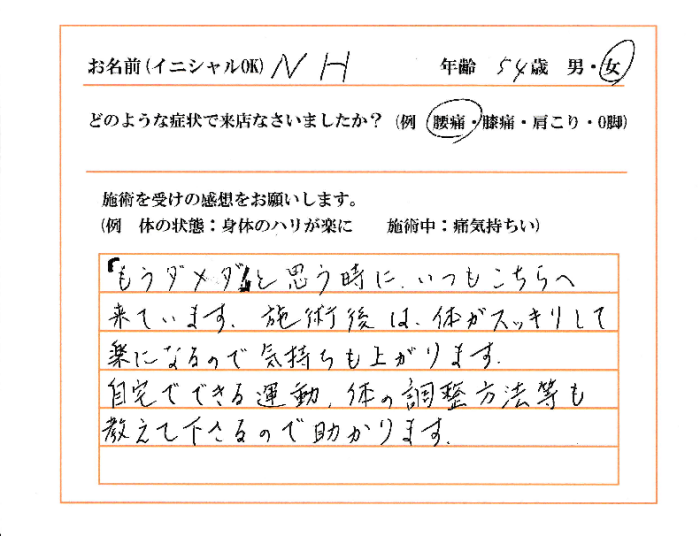 お名前(イニシャルOK) N H 年齢 54歳 男・女
どのような症状で来店なさいましたか? (例 腰痛・膝痛・肩こり・O脚)
施術を受けの感想をお願いします。
(例 体の状態:身体のハリが楽に 施術中:痛気持ちい)
「もうダメダ」と思う時に、いつもこちらへ
来ています。施術後は、体がスッキリして
楽になるので気持ちも上がります。
自宅でできる運動、体の調整方法等も
教えて下さるので助かります。